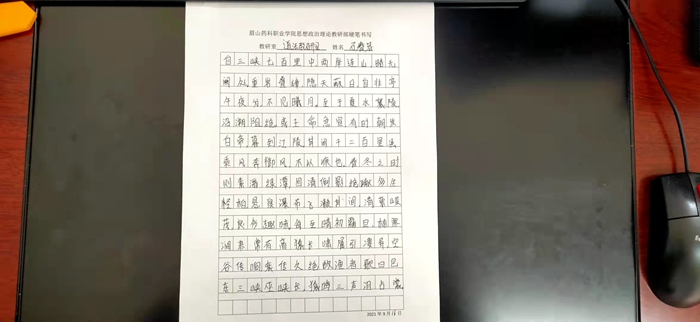 眉山药科职业学院思想政治理论教研部硬笔书写
教研室 道法教研室 姓名
自三峡七百里中两岸连山略无
阙处重岩叠嶂隐天蔽日自非亭
午夜分不见曦月至于夏水襄陵
沿溯阻绝或王命急宣有时朝发
白帝暮到江陵其间千二百里虽
乘风奔御风不以疾也春冬之时
则素湍绿潭回清倒影绝巘多生
怪柏悬泉瀑布飞漱其间清荣峻
茂良多趣味每至晴初霜旦林寒
涧肃常有高猿长啸属引凄异空
谷传响哀转久绝故渔者歌曰巴
东三峡巫峡长猿鸣三声泪沾裳
2021年9月18日